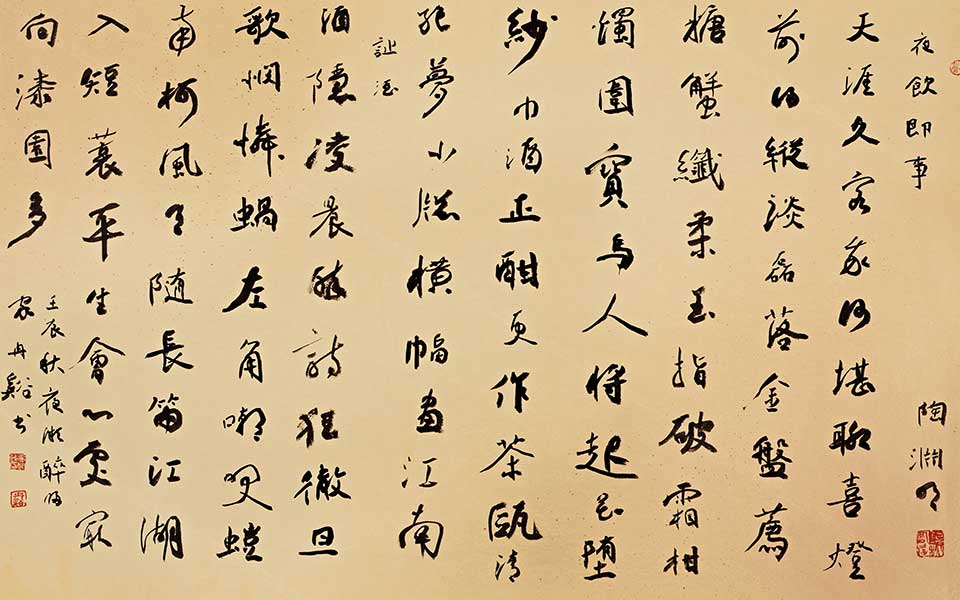 夜飲即事 陶淵明
天涯久客我何堪聊喜燈
前得縱談磊落金盤薦
糖蟹纖柔玉指破霜柑
燭圍寶馬人將起花墮
紗巾酒正酣更作茶甌清
絕夢小牕橫幅畫江南
酒
酒隱凌晨醉詩狂徹旦
歌憫憐蝸左角嘲笑螘
南柯風月隨長笛江湖
入短蓑平生會心處最
向漆園多
壬辰秋夜 醉
丹谿書